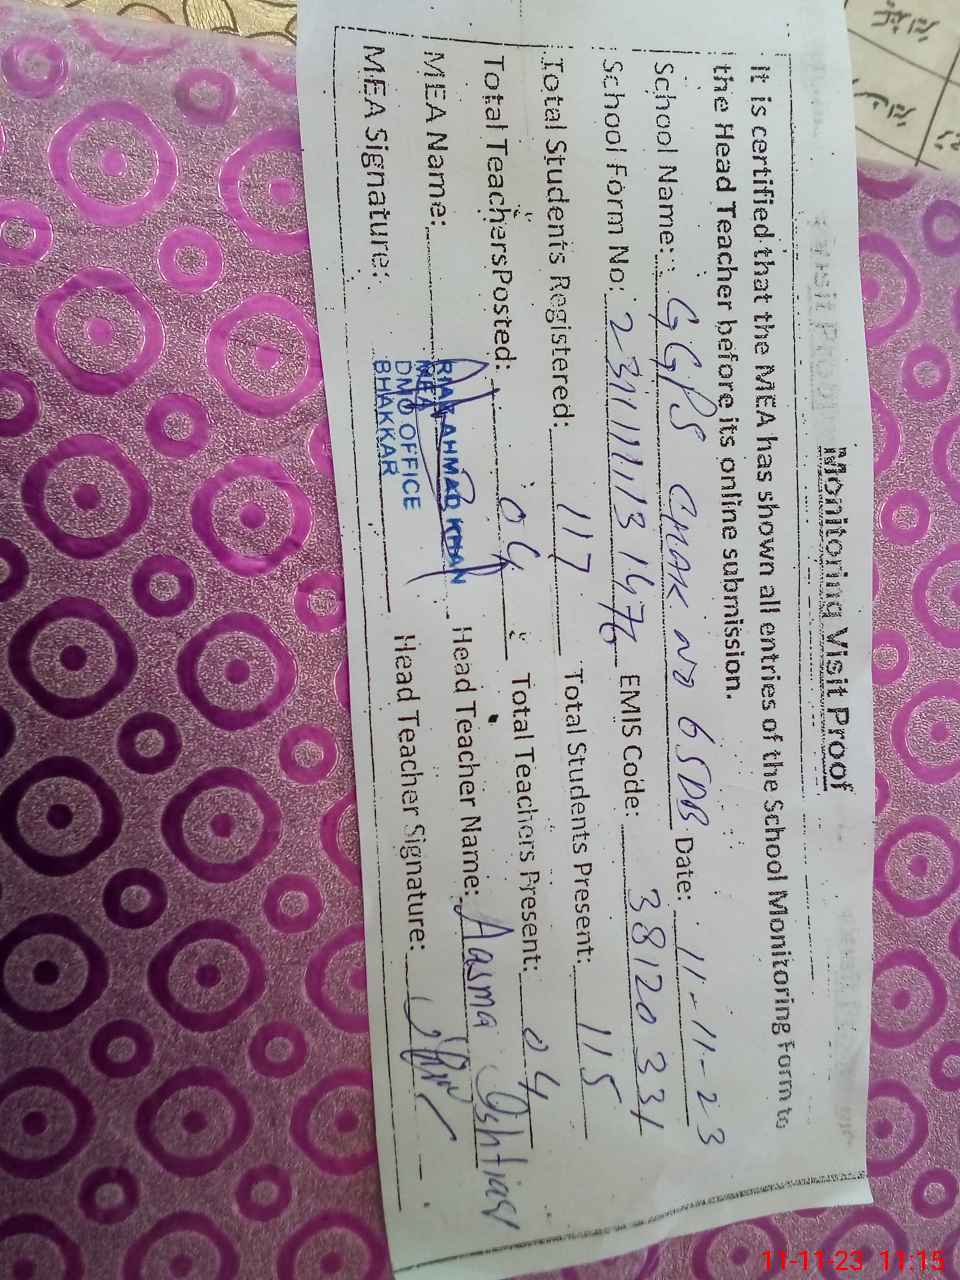 Monitoring Visit Proof
It is certified that the MEA has shown all entries of the School Monitoring Form to
the Head Teacher before its online submission.
School Name: GGPS CHAK NO 65DB Date: 11-11-23
School Form No: 2311111131476 EMIS Code: 38120331
Total Students Registered: 117 Total Students Present: 115
Total Teachers Posted: 04 Total Teachers Present: 04
MEA Name: RIAZ AHMAD KHAN Head Teacher Name: Aasma Ishtiaq
MEA
DMO OFFICE
BHAKKAR
MEA Signature: Head Teacher Signature:
11-11-23 11:15